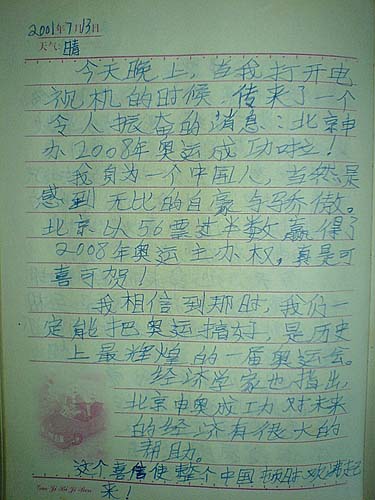 2001年7月13日
天气: 晴
今天晚上,当我打开电
视机的时候,传来了一个
令人振奋的消息:北京申
办2008年奥运成功啦!
我身为一个中国人,当然是
感到无比的自豪与骄傲。
北京以56票过半数赢得了
2008年奥运主办权,真是可
喜可贺!
我相信到那时,我们一
定能把奥运搞好,是历史
上最辉煌的一届奥运会。
经济学家也指出,
北京申奥成功对未来
的经济有很大的
帮助。
这个喜信使整个中国顿时欢腾起
来!